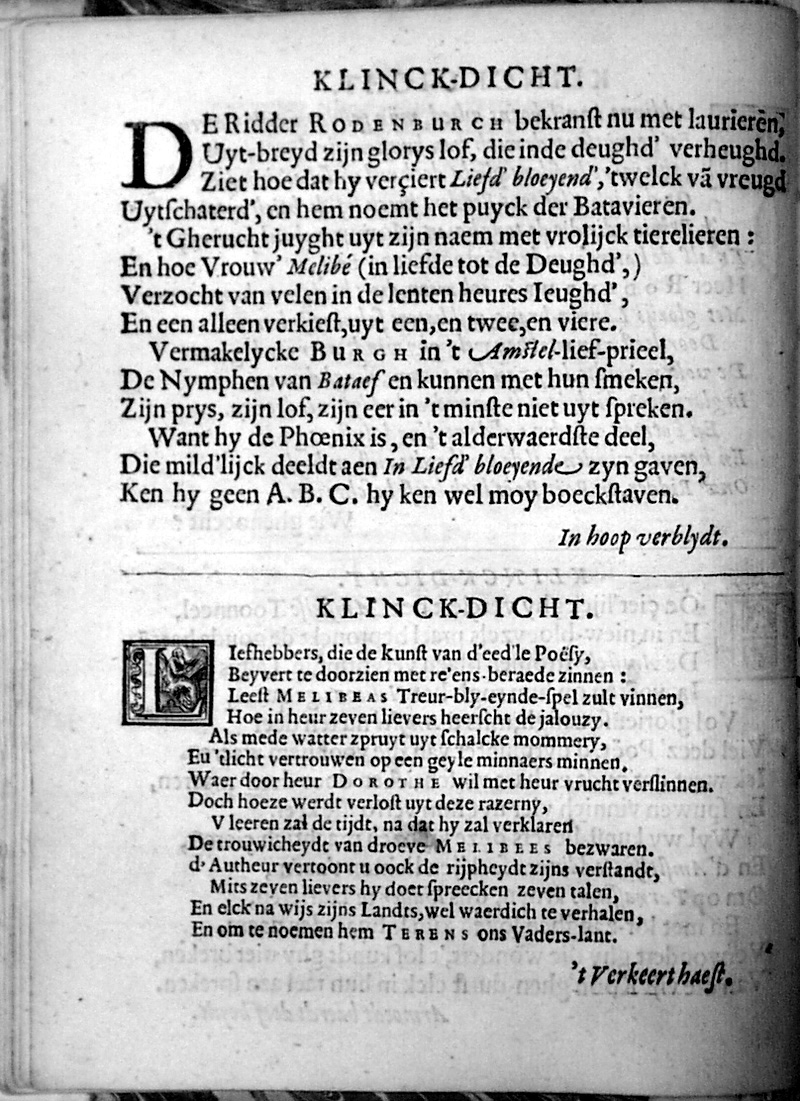 KLINCK-DICHT.
DE Ridder RODENBURCH bekranſt nu met laurieren,
Uyt-breyd zijn glorys lof, die inde deughd' verheughd.
Ziet hoe dat hy verçiert Liefd' bloeyend', 'twelck vã vreugd
Uytſchaterd', en hem noemt het puyck der Batavieren.
't Gherucht juyght uyt zijn naem met vrolijck tierelieren :
En hoe Vrouw' Melibé (in liefde tot de Deughd',)
Verzocht van velen in de lenten heures Ieughd',
En een alleen verkieſt, uyt een, en twee, en viere.
Vermakelycke BURGH in 't Amſtel-lief-prieel,
De Nymphen van Bataef en kunnen met hun ſmeken,
Zijn prys, zijn lof, zijn eer in 't minſte niet uyt ſpreken.
Want hy de Phœnix is, en 't alderwaerdſte deel,
Die mild'lijck deeldt aen In Liefd' bloeyende zyn gaven,
Ken hy geen A. B. C. hy ken wel moy boeckſtaven.
In hoop verblydt.
KLINCK-DICHT.
LIefhebbers, die de kunſt van d'eed'le Poëſy,
Beyvert te doorzien met re'ens-beraede zinnen :
Leeſt MELIBEAS Treur-bly-eynde-ſpel zult vinnen,
Hoe in heur zeven lievers heerſcht de jalouzy.
Als mede watter zpruyt uyt ſchalcke mommery,
Eu 'tlicht vertrouwen op een geyle minnaers minnen.
Waer door heur DOROTHE wil met heur vrucht verſlinnen.
Doch hoeze werdt verloſt uyt deze razerny,
V leeren zal de tijdt, na dat hy zal verklaren
De trouwicheydt van droeve MELIBEES bezwaren.
d' Autheur vertoont u oock de rijpheydt zijns verſtandt,
Mits zeven lievers hy doet ſpreecken zeven talen,
En elck na wijs zijns Landts, wel waerdich te verhalen,
En om te noemen hem TERENS ons Vaders-lant.
't Verkeert haeſt.